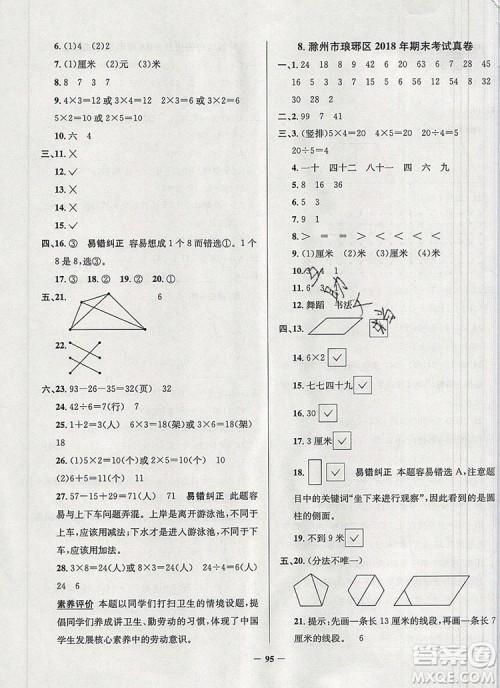 6. (1)4　(2)2
7. (1)厘米　(2)元　(3)厘米
8. 7　3　7
9. 4×3=12　(1)3×4=12　(2)2×5=10
5×2=10　或　2×5=10　5×2=10
10. 六　4
三、11. ×
12. ×
13. ×
14. ×
15. ✓
四、16. ③　易错纠正　容易想成 1 个 8 而错选①。1
个 8 是 8,选③。
17. ③　18. ②　19. ②　20. ①
五、21. 6
22.
六、23. 93-26-35=32(页)　32
24. 42÷6=7(行)　7
25. 1+2=3(人)　6×3=18(架)或 3×6=18(架)
18
26. (1)5×2=10(人)或 2×5=10(人)　10
(2)6÷1=6　6
27. 57-15+29=71(人)　71　易错纠正　此题容
易与上下车问题弄混。上岸是离开游泳池,人
少了,应该用减法;下水才是进入游泳池,人多
了,应该用加法。
28. 3×8=24(人)或 8×3=24(人)　24÷4=6(人)
24　6
素养评价　本题以同学们打扫卫生的情境设题,
提倡同学们养成讲卫生、勤劳动的习惯,体现了中国
学生发展核心素养中的劳动意识。
8. 滁州市琅琊区 2018 年期末考试真卷
一、1. 24　18　12　9　42　16　63　7　28　45
15　32　6　29　31
二、2. 99　7　41
三、3. (竖排)5×4=20　4×5=20　20÷4=5
20÷5=4
4. 一十　四十二　八十一　四　六　九
7. 4　3　7　5
8. >　>　=　<　<　<
9. (1)厘米　(2)厘米　(3)米
10. 3　4　1
11. 6　3　8
12. 舞蹈　书法
四、13. ✓
14. 6×2 ✓
15. 七七四十九 ✓
16. 30 ✓
17. 3 厘米 ✓
18. ✓　易错纠正　本题容易错选 A,注意题
目中的关键词“坐下来进行观察”,因此看到的是圆
柱的侧面。
19. 不到 9 米 ✓
五、20. (分法不唯一)
21. 提示:先画一条长 4 厘米的线段,再画一条长
9 厘米的线段。　6
95
答案圈
MXQE.COM